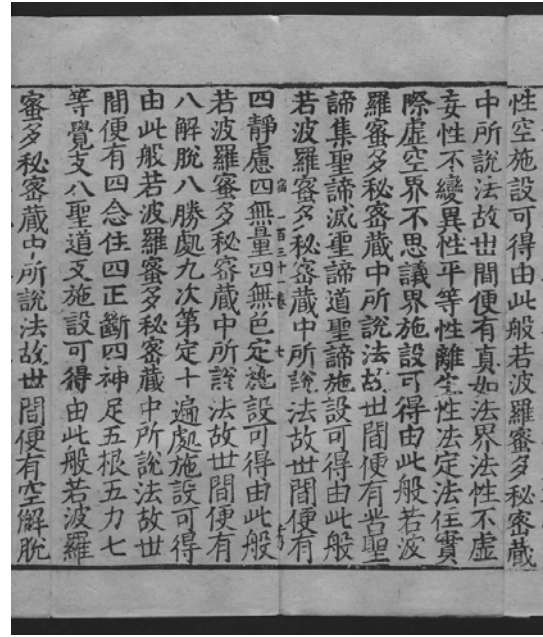 性空施設可得由此般若波羅蜜多秘密藏
中所說法故世間便有真如法界法性不虛
妄性不變異性平等性離生性法定法住實
際虛空界不思議界施設可得由此般若波
羅蜜多秘密藏中所說法故世間便有苦聖
諦集聖諦滅聖諦道聖諦施設可得由此般
若波羅蜜多秘密藏中所說法故世間便有
一百三十一卷 七
四靜慮四無量四無色定施設可得由此般
若波羅蜜多秘密藏中所說法故世間便有
八解脫八勝處九次第定十遍處施設可得
由此般若波羅蜜多秘密藏中所說法故世
間便有四念住四正斷四神足五根五力七
等覺支八聖道支施設可得由此般若波羅
蜜多秘密藏中所說法故世間便有空解脫